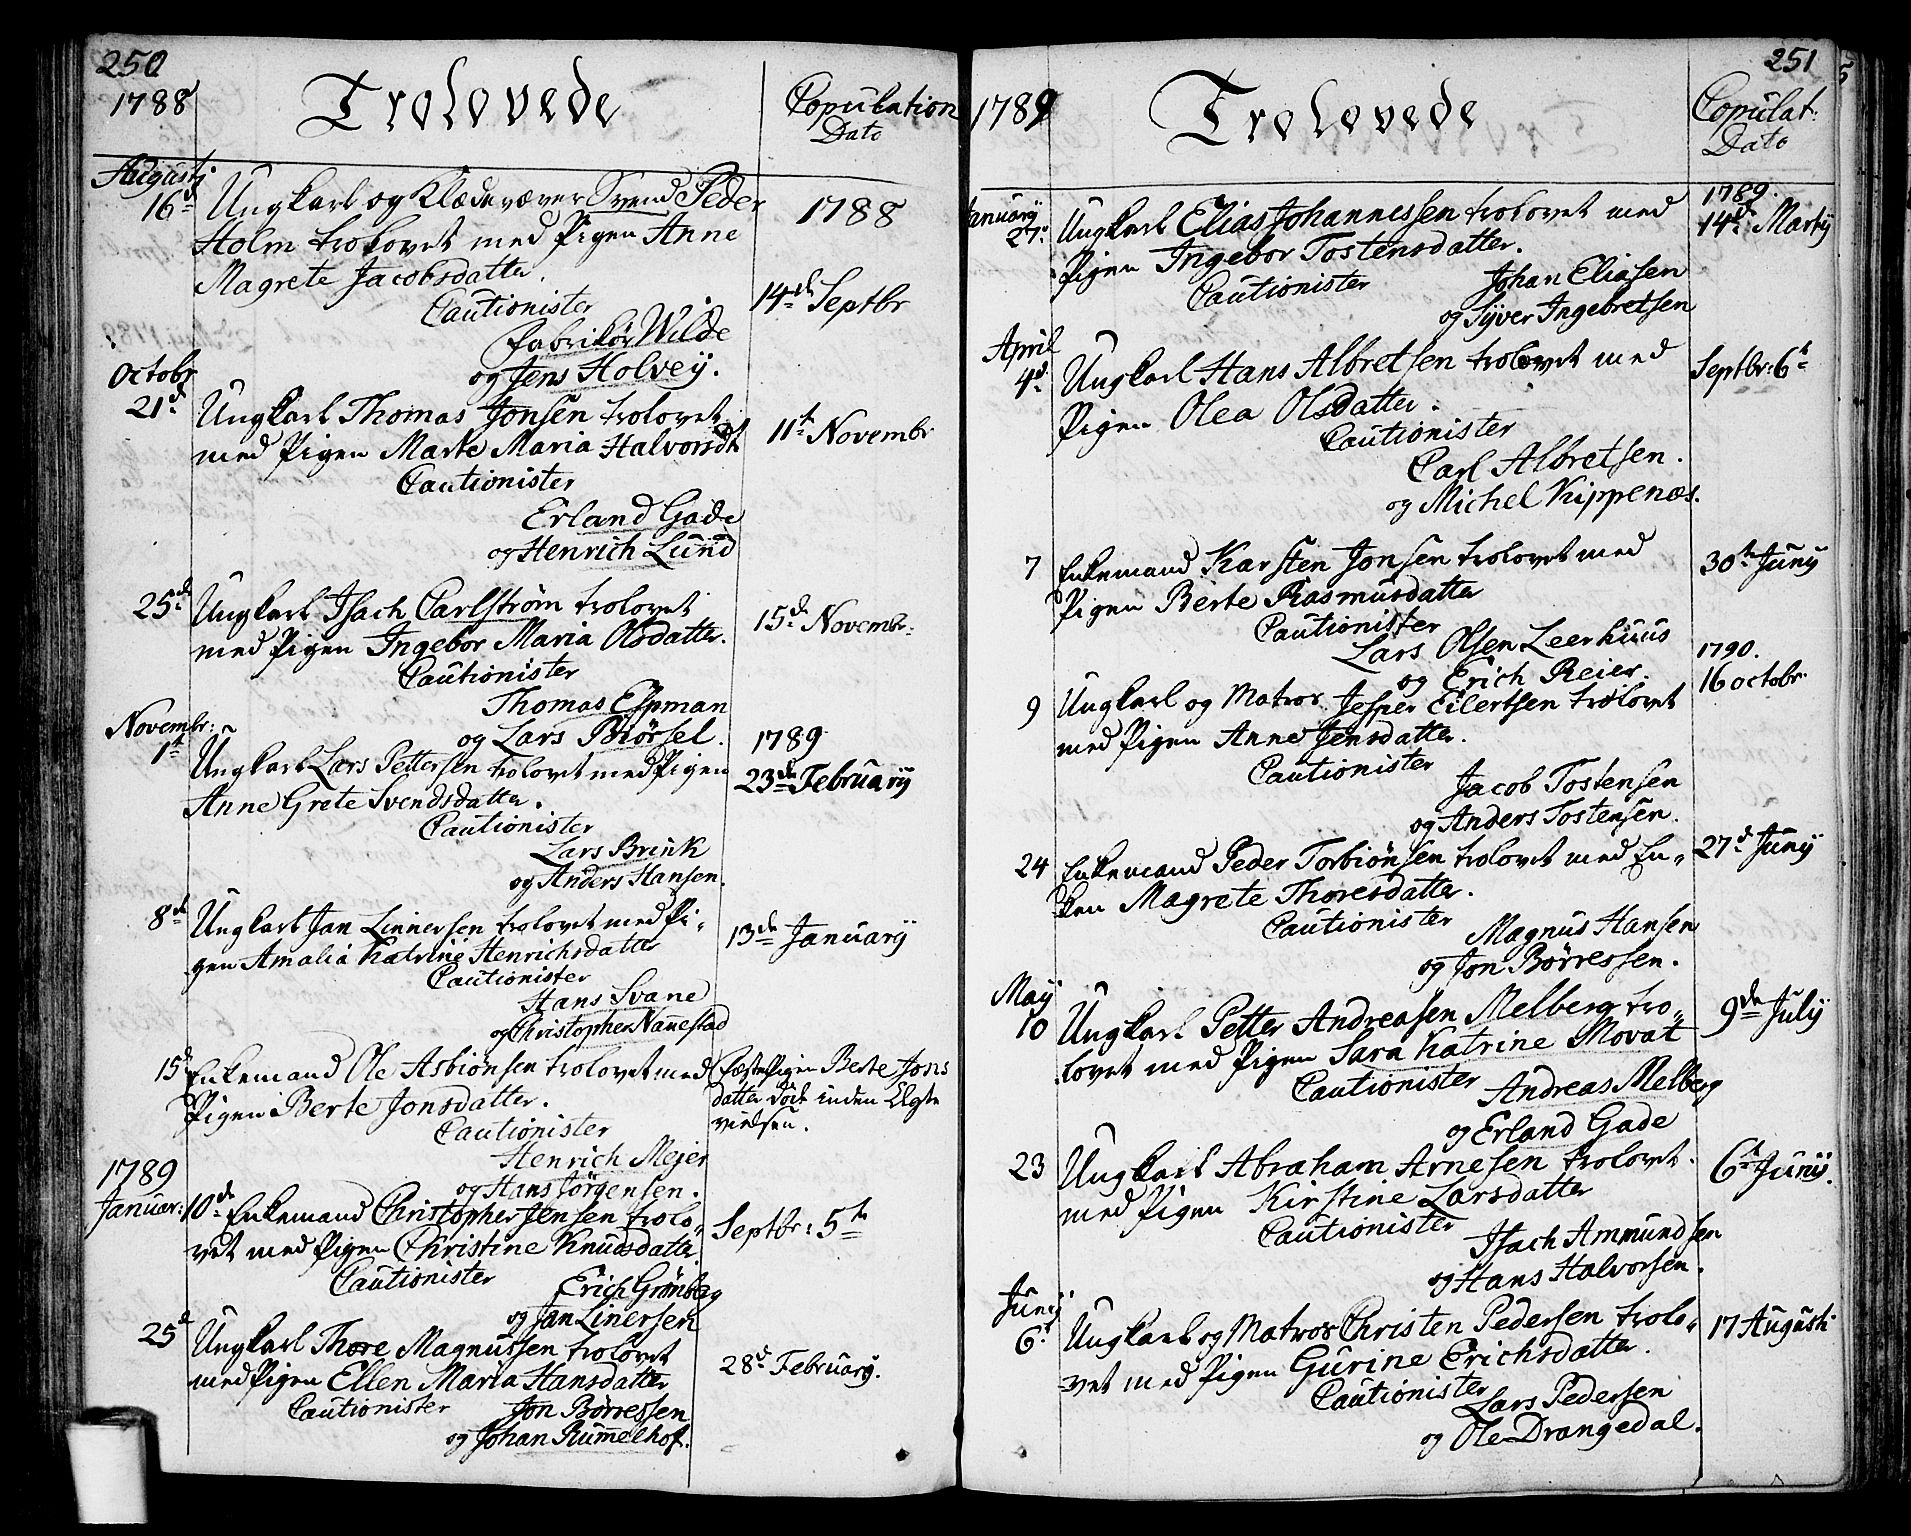 250
1788
Trolovede
Copulation
Dato
Augustj
16d
Ungkarl og Klædevæver Svend Peder
Holm trolovet med Pigen Anne
Magrete Jacobsdatter.
Cautionister
Fabrikör Wilde
og Jens Holvey.
1788
14de Septbr
Octobr
21d
Ungkarl Thomas Jonsen trolovet
med Pigen Marte Maria Halvorsdt
Cautionister
Erland Gade
og Henrich Lund
11t Novembr
25de
Ungkarl Isach Carlström trolovet
med Pigen Ingebor Maria Olsdatter.
Cautionister
Thomas Espman
og Lars Biörsel.
15d Novembr:
Novembr:
1t
Ungkarl Lars Pettersen trolovet med Pigen
Anne Grete Svendsdatter.
Cautionister
Lars Brink
og Anders Hansen.
1789
23de Februarij
8de
Ungkarl Jan Linnersen trolovet med Pi-
gen Amalia Katrine Henrichsdatter
Cautionister
Hans Svane
og Christopher Nannestad
13de Januarij
15d
Enkemand Ole Asbiönsen trolovet med
Pigen Berte Jonsdatter.
Cautionister
Henrich Mejer
og Hans Jörgensen.
Fæstepigen Berte Jons
datter döde inden Ægte
vielsen.
1789
Januar: 10de
Enkemand Christopher Jensen trolo-
vet med Pigen Christine Knudsdatter
Cautionister
Erich Grönberg
og Jan Linersen
Septbr: 5te
25d
Ungkarl Thore Magnussen trolovet
med Pigen Ellen Maria Hansdatter
Cautionister
Jon Börressen
og Johan Rummelhof.
28d Februarij.
251
1789
Trolovede
Copulat:
Dato
Januarij
27d
Ungkarl Elias Johannessen trolovet med
Pigen Ingebor Tostensdatter.
Cautionister
Johan Eliasen
og Syver Ingebretsen
1789.
14de Martij
April
4d
Ungkarl Hans Albretsen trolovet med
Pigen Olea Olsdatter.
Cautionister
Carl Albretsen.
og Michel Kippenæs.
Septbr: 6t
7
Enkemand Karsten Jonsen trolovet med
Pigen Berte Rasmusdatter
Cautionister
Lars Olsen Leerhuus
og Erich Reier.
30te Junij
9
Ungkarl og Matros Jesper Eilertsen trolovet
med Pigen Anne Jensdatter.
Cautionister
Jacob Tostensen
og Anders Tostensen.
1790.
16 octobr.
24
Enkemand Peder Torbiönsen trolovet med En-
ken Magrete Thoresdatter.
Cautionister
Magnus Hansen
og Jon Börressen.
27d Junij
Maij
10
Ungkarl Petter Andreasen Melberg tro-
lovet med Pigen Sara Katrine Movat
Cautionister
Andreas Melberg
og Erland Gade
9de Julij
23
Ungkarl Abraham Arnesen trolovet
med Pigen Kirstine Larsdatter
Cautionister
Isach Ammundsen
og Hans Halvorsen.
6t Junij.
Junij
6t
Ungkarl og Matros Christen Pedersen trolo-
vet med Pigen Gurine Erichsdatter.
Cautionister
Lars Pedersen
og Ole Drangedal.
17 Augusti